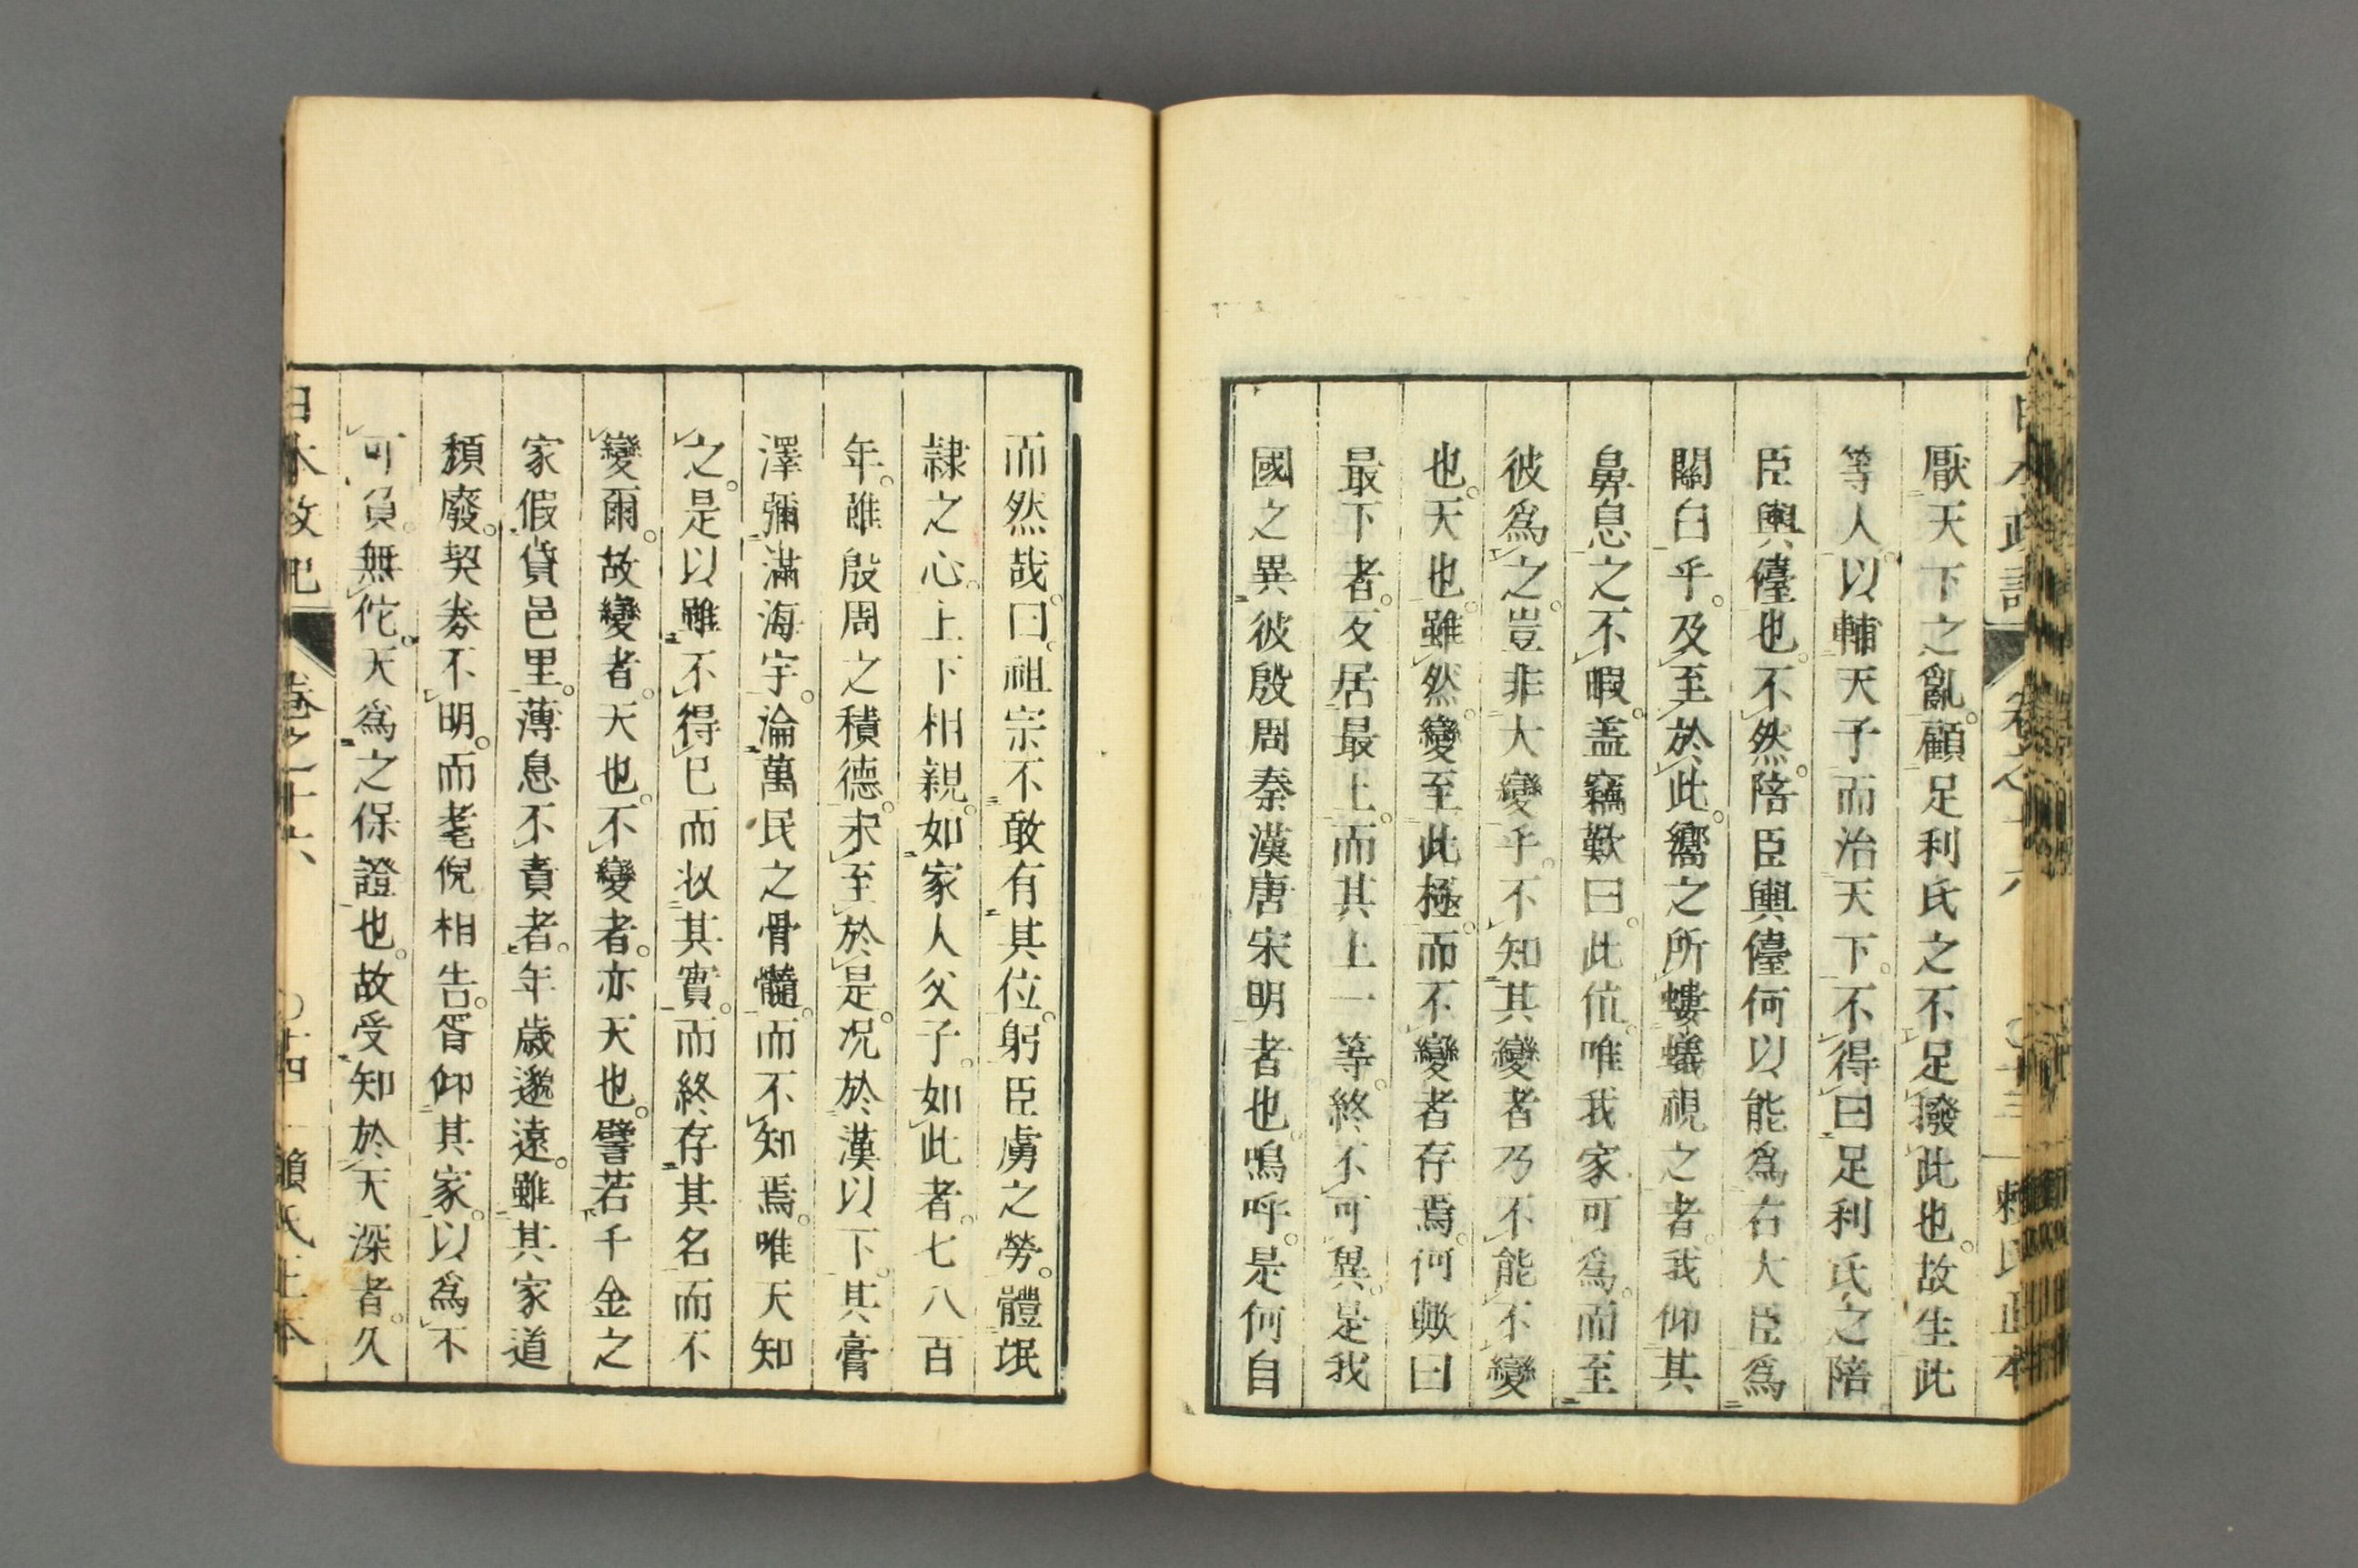 厭天下之亂。顧足利氏之不足撥此也。故生此
等人。以輔天子而治天下。不得曰足利氏之陪
臣輿儓也。不然。陪臣輿儓何以能爲右大臣爲
關白乎。及至於此。嚮之所螻蟻視之者。我仰其
鼻息之不暇。盖竊歎曰。此位唯我家可爲。而至
彼爲之。豈非大變乎。不知其變者乃不能不變
也。天也。雖然。變至此極。而不變者存焉。何歟曰
最下者。又居最上。而其上一等。終不可異。是我
國之異彼殷周秦漢唐宋明者也。嗚呼。是何自
而然哉。曰。祖宗不敢有其位。躬臣虜之勞。體氓
隷之心。上下相親。如家人父子。如此者。七八百
年。雖殷周之積德。未至於是。况於漢以下。其膏
澤彌滿海宇。淪萬民之骨髓。而不知焉。唯天知
之。是以雖不得已而收其實。而終存其名而不
變爾。故變者。天也。不變者。亦天也。譬若千金之
家假貸邑里。薄息不責者。年歲邈遠。雖其家道
頹廢。契劵不明。而耄倪相告。胥仰其家。以爲不
可負。無佗。天爲之保證也。故受知於天深者。久
日本政記 卷之十六 〇十四 賴氏正本